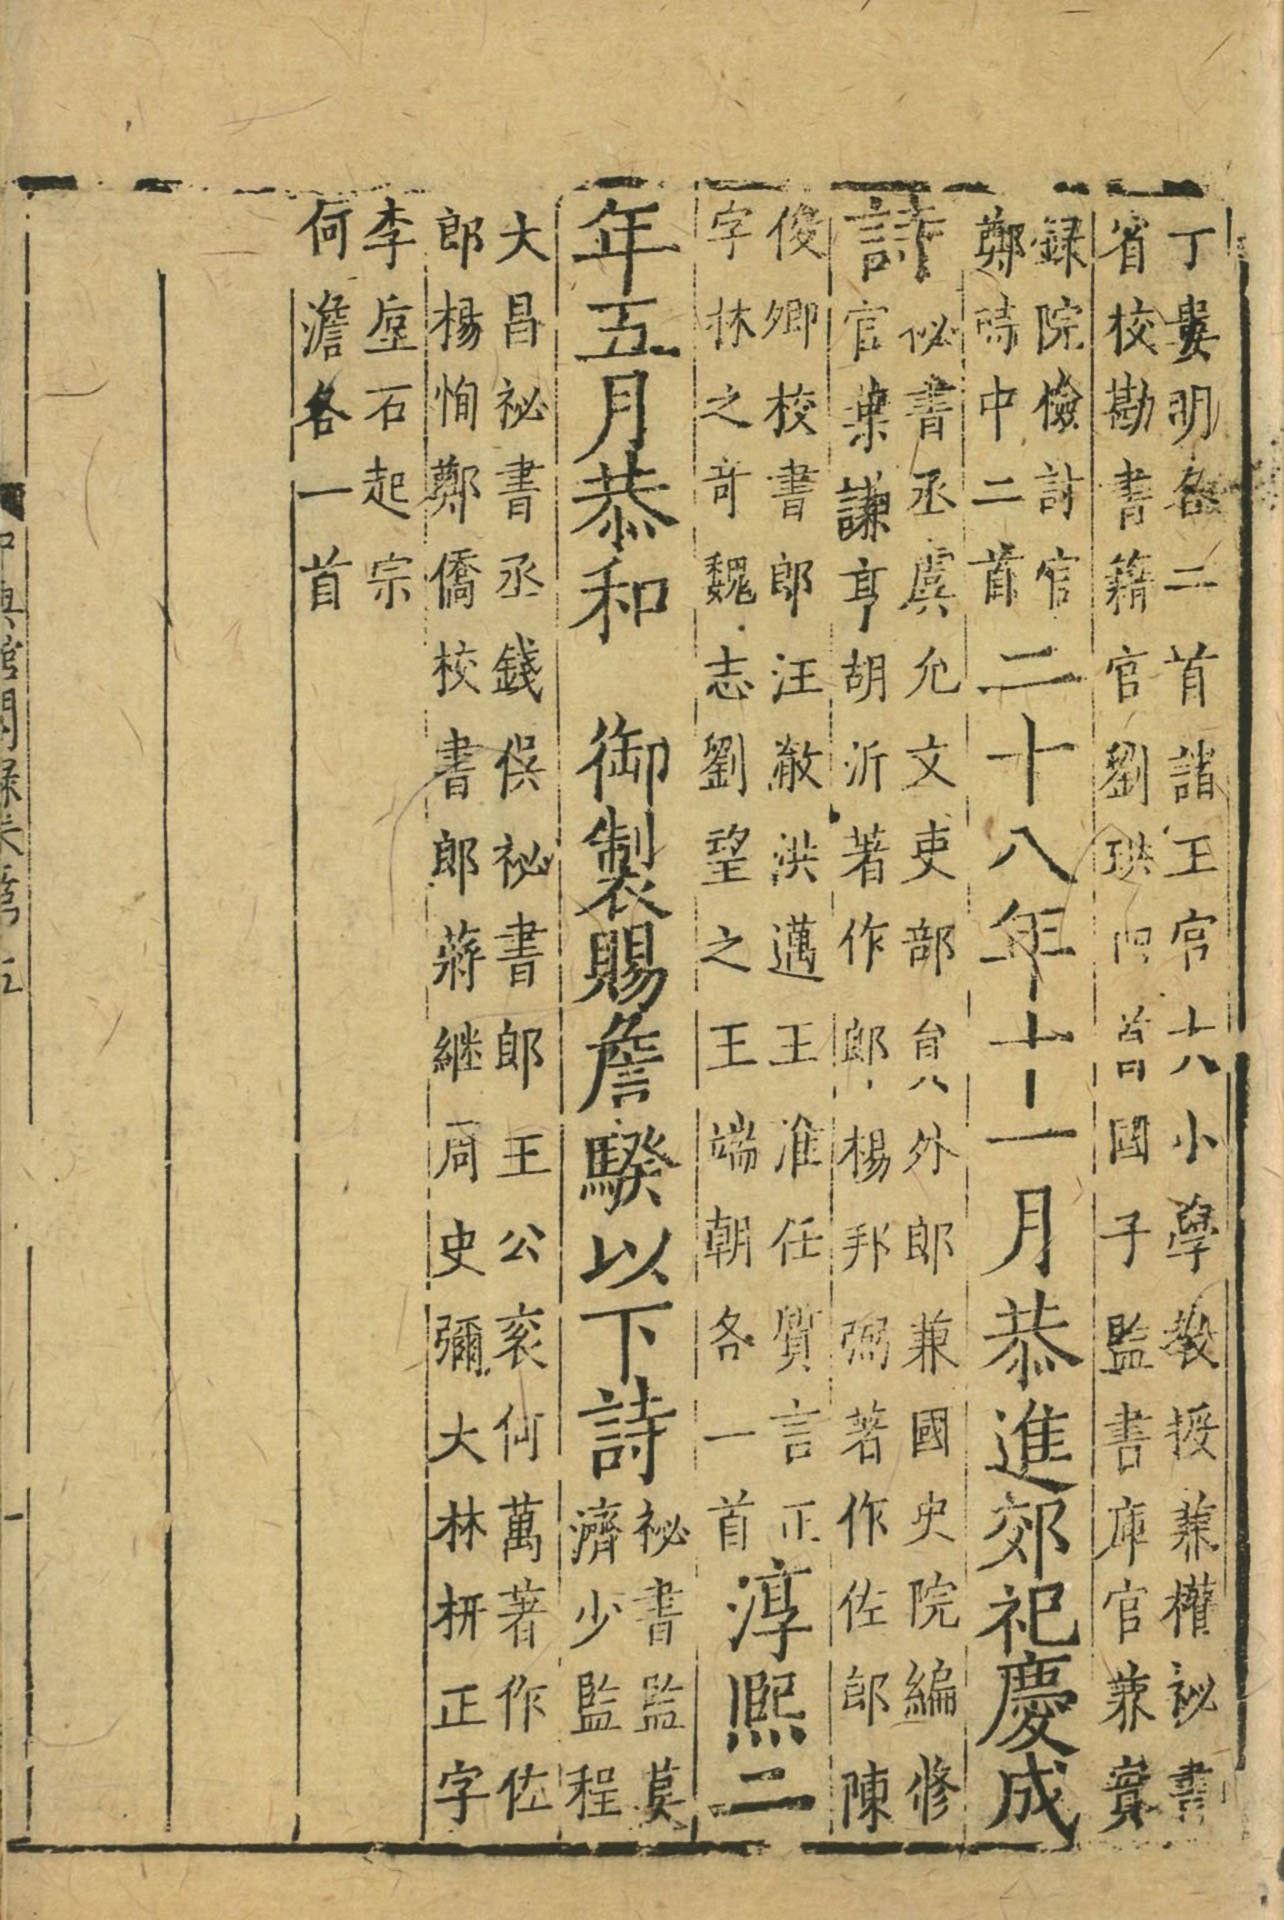 丁婁明各二首諸王宮大小學教授兼權祕書
省校勘書籍官劉珙 首國子監書庫官兼實
録院檢討官
鄭時中二首
二十八年十一月恭進郊祀慶成
詩
祕書丞虞允文吏部員外郎兼國史院編修
官葉謙亨胡沂著作郎楊邦弼著作佐郎陳
俊卿校書郎汪澈洪邁王淮任質言正
字林之奇魏志劉望之王端朝各一首
淳熙二
年五月恭和 御製賜詹騤以下詩
祕書監莫
濟少監程
大昌祕書丞錢俁祕書郎王公衮何萬著作佐
郎楊恂鄭僑校書郎蔣繼周史彌大林枅正字
李垕石起宗
何澹各一首
中興館閣録卷第五